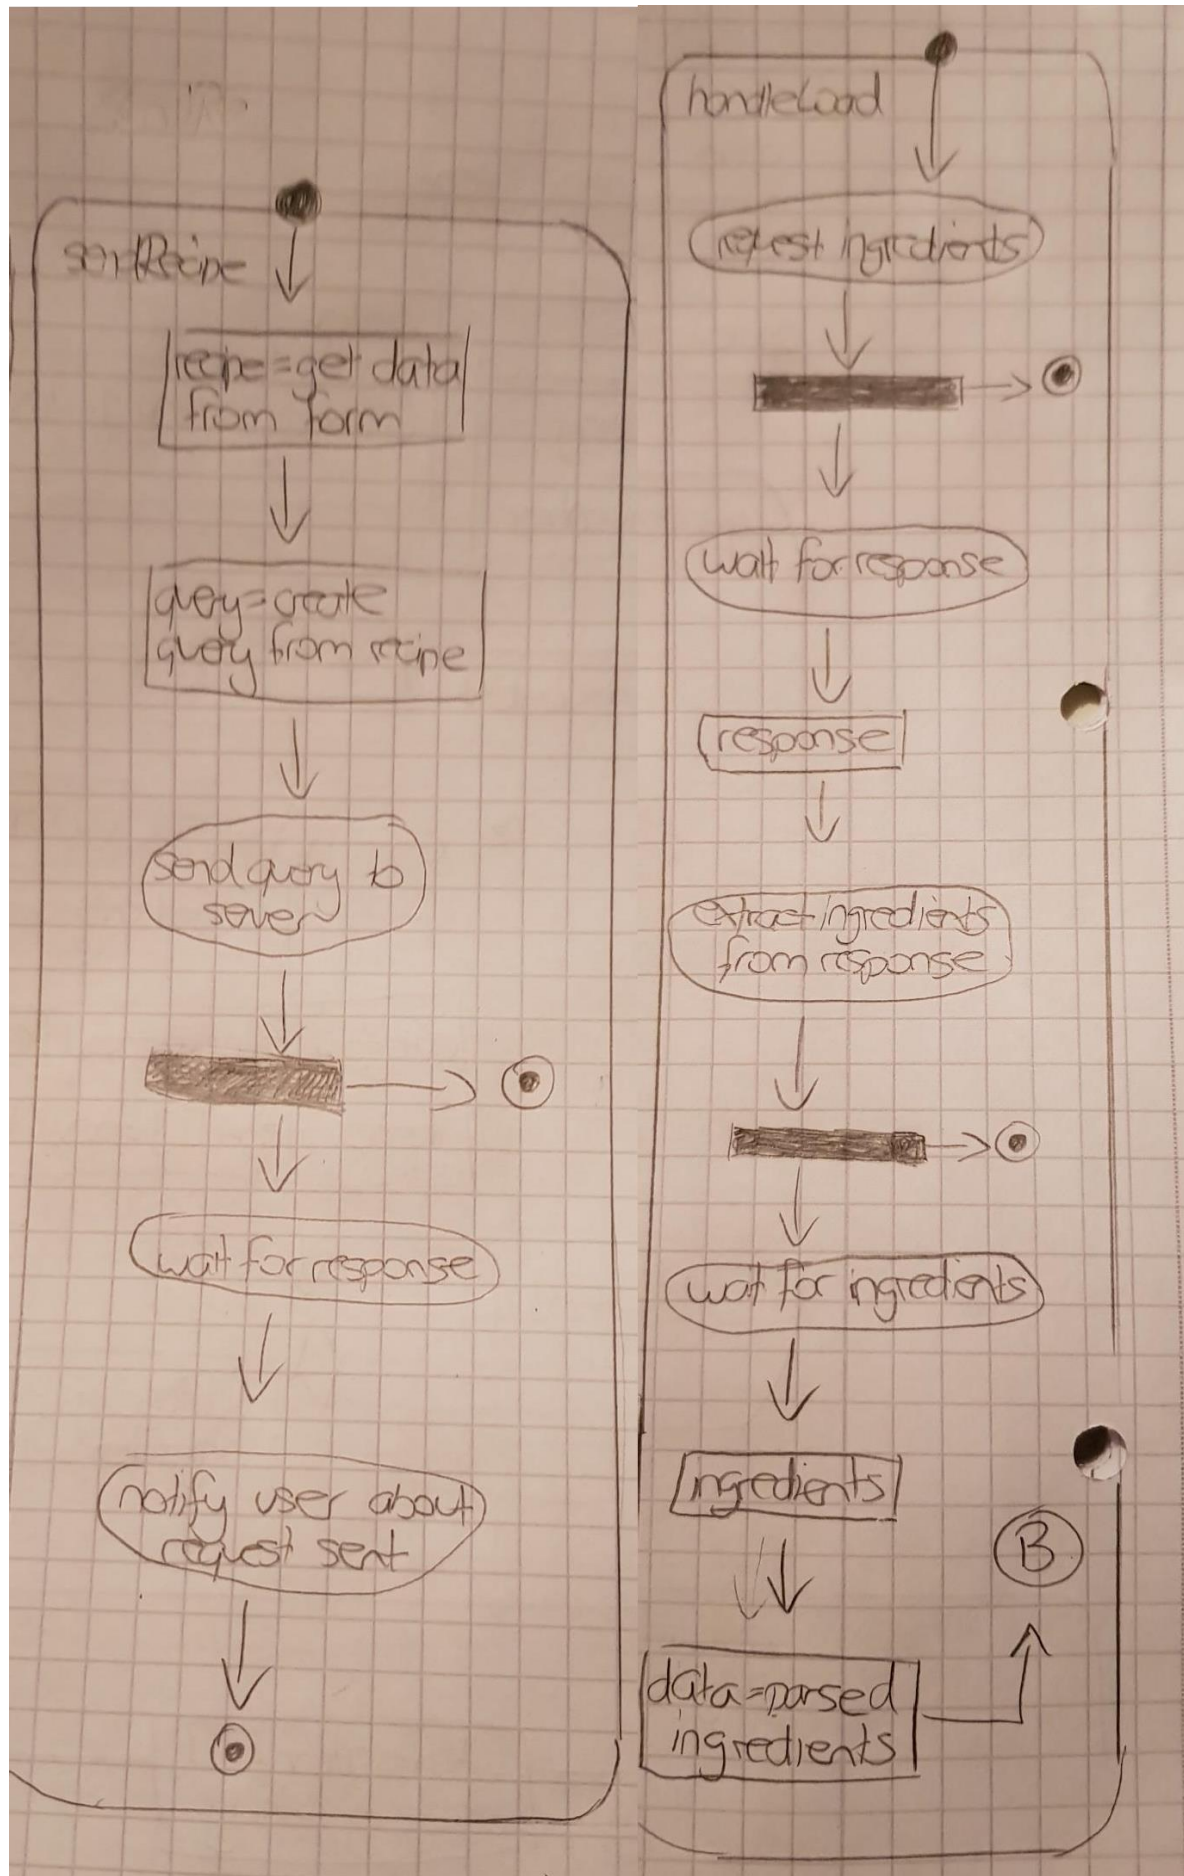 sendRecipe
recipe=get data
from form
query=create
query from recipe
send query to
server
wait for response
notify user about
request sent
handleLoad
request ingredients
wait for response
response
extract ingredients
from response
wait for ingredients
ingredients
B
data=parsed
ingredients